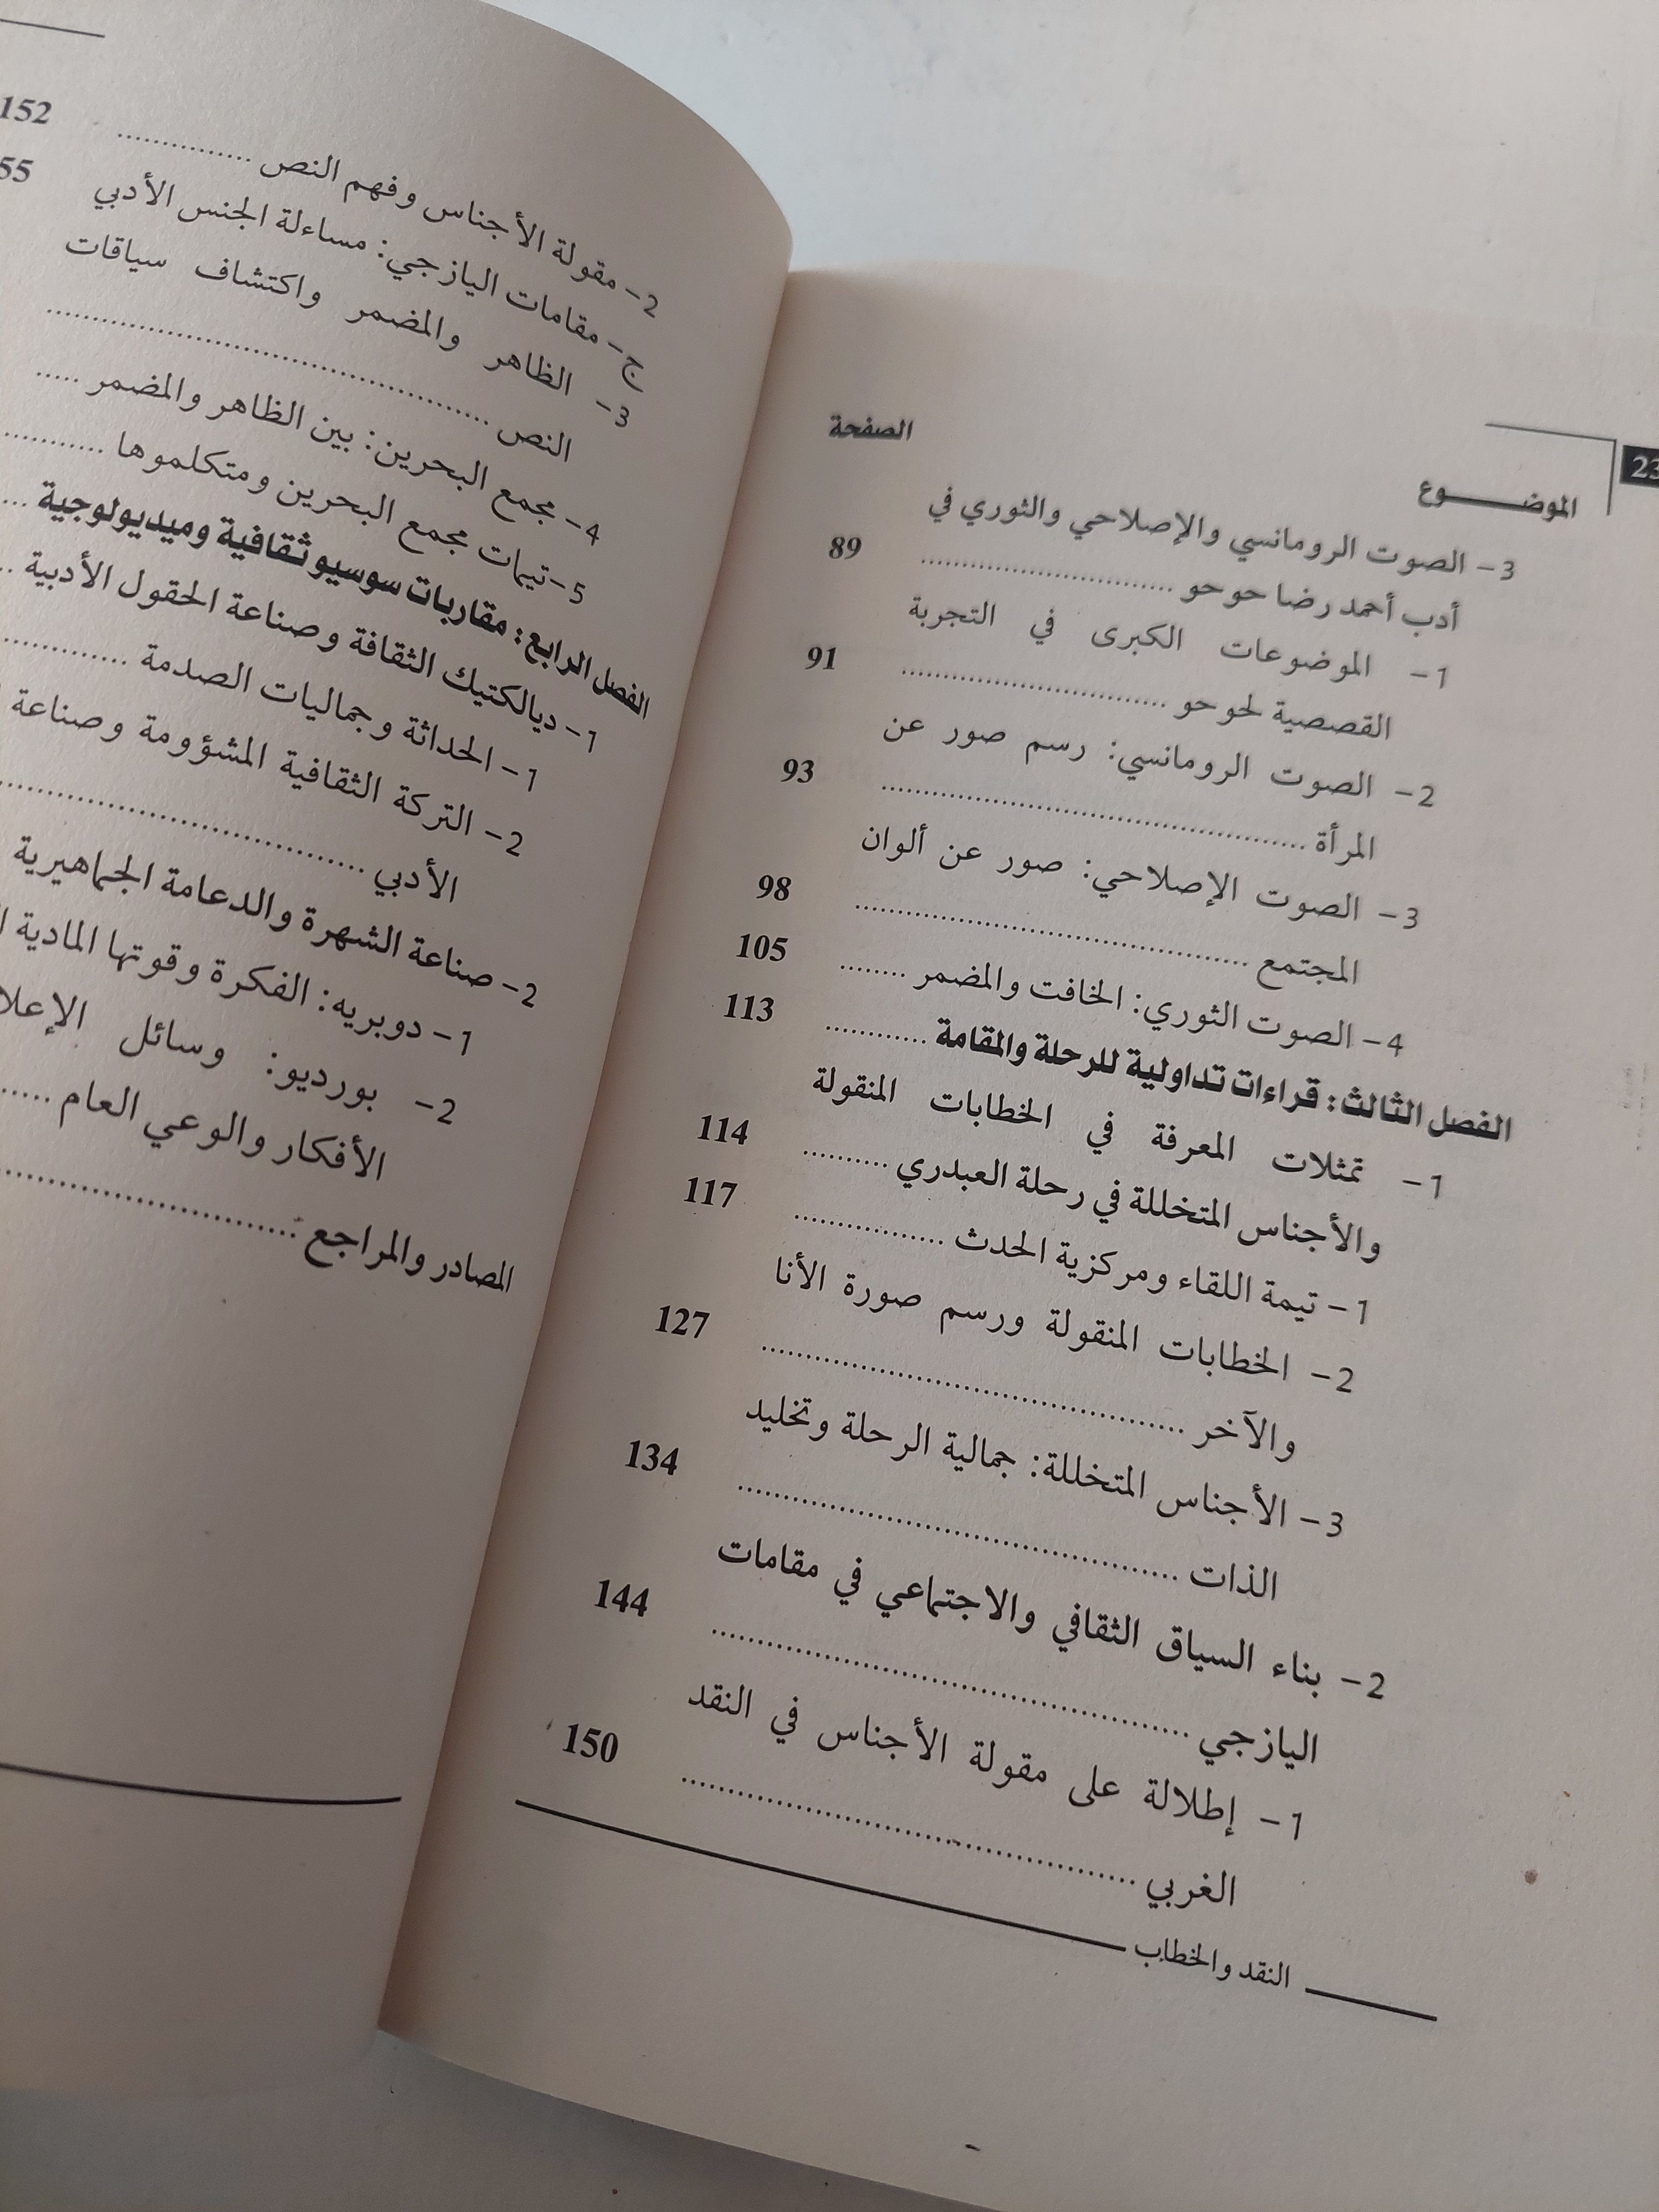 23
الموضـــــوع الصفحة
3- الصوت الرومانسي والإصلاحي والثوري في
أدب أحمد رضا حوحو ............................ 89
1- الموضوعات الكبرى في التجربة
القصصية لحوحو ............................. 91
2- الصوت الرومانسي: رسم صور عن
المرأة ............................................. 93
3- الصوت الإصلاحي: صور عن ألوان
المجتمع .......................................... 98
4- الصوت الثوري: الخافت والمضمر ........ 105
الفصل الثالث: قراءات تداولية للرحلة والمقامة ........... 113
1- تمثلات المعرفة في الخطابات المنقولة
والأجناس المتخللة في رحلة العبدري .......... 114
1- تيمة اللقاء ومركزية الحدث ................. 117
2- الخطابات المنقولة ورسم صورة الأنا
والآخر ............................................. 127
3- الأجناس المتخللة: جمالية الرحلة وتخليد
الذات ............................................... 134
2- بناء السياق الثقافي والاجتماعي في مقامات
اليازجي ................................................... 144
1- إطلالة على مقولة الأجناس في النقد
الغربي ................................................. 150
النقد والخطاب
2- مقولة الأجناس وفهم النص ............... 152
ج- مقامات اليازجي: مساءلة الجنس الأدبي 55
3- الظاهر والمضمر واكتشاف سياقات
النص ................................................
4- مجمع البحرين: بين الظاهر والمضمر .....
5-تيمات مجمع البحرين ومتكلموها ...........
الفصل الرابع: مقاربات سوسيوثقافية وميديولوجية ...
1- ديالكتيك الثقافة وصناعة الحقول الأدبية ..
1- الحداثة وجماليات الصدمة .............
2- التركة الثقافية المشؤومة وصناعة
الأدبي .........................................
2- صناعة الشهرة والدعامة الجماهيرية
1- دوبريه: الفكرة وقوتها المادية
2- بورديو: وسائل
الأفكار والوعي العام .....
المصادر والمراجع ................................